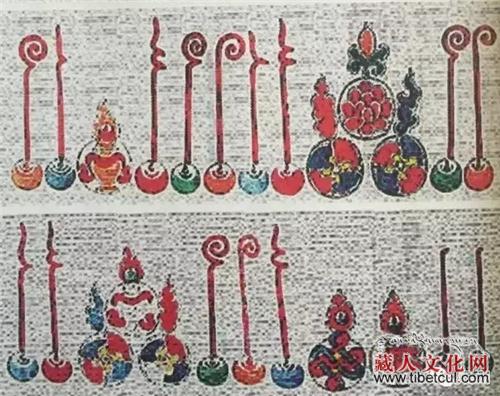 藏人文化网
www.tibetcul.com